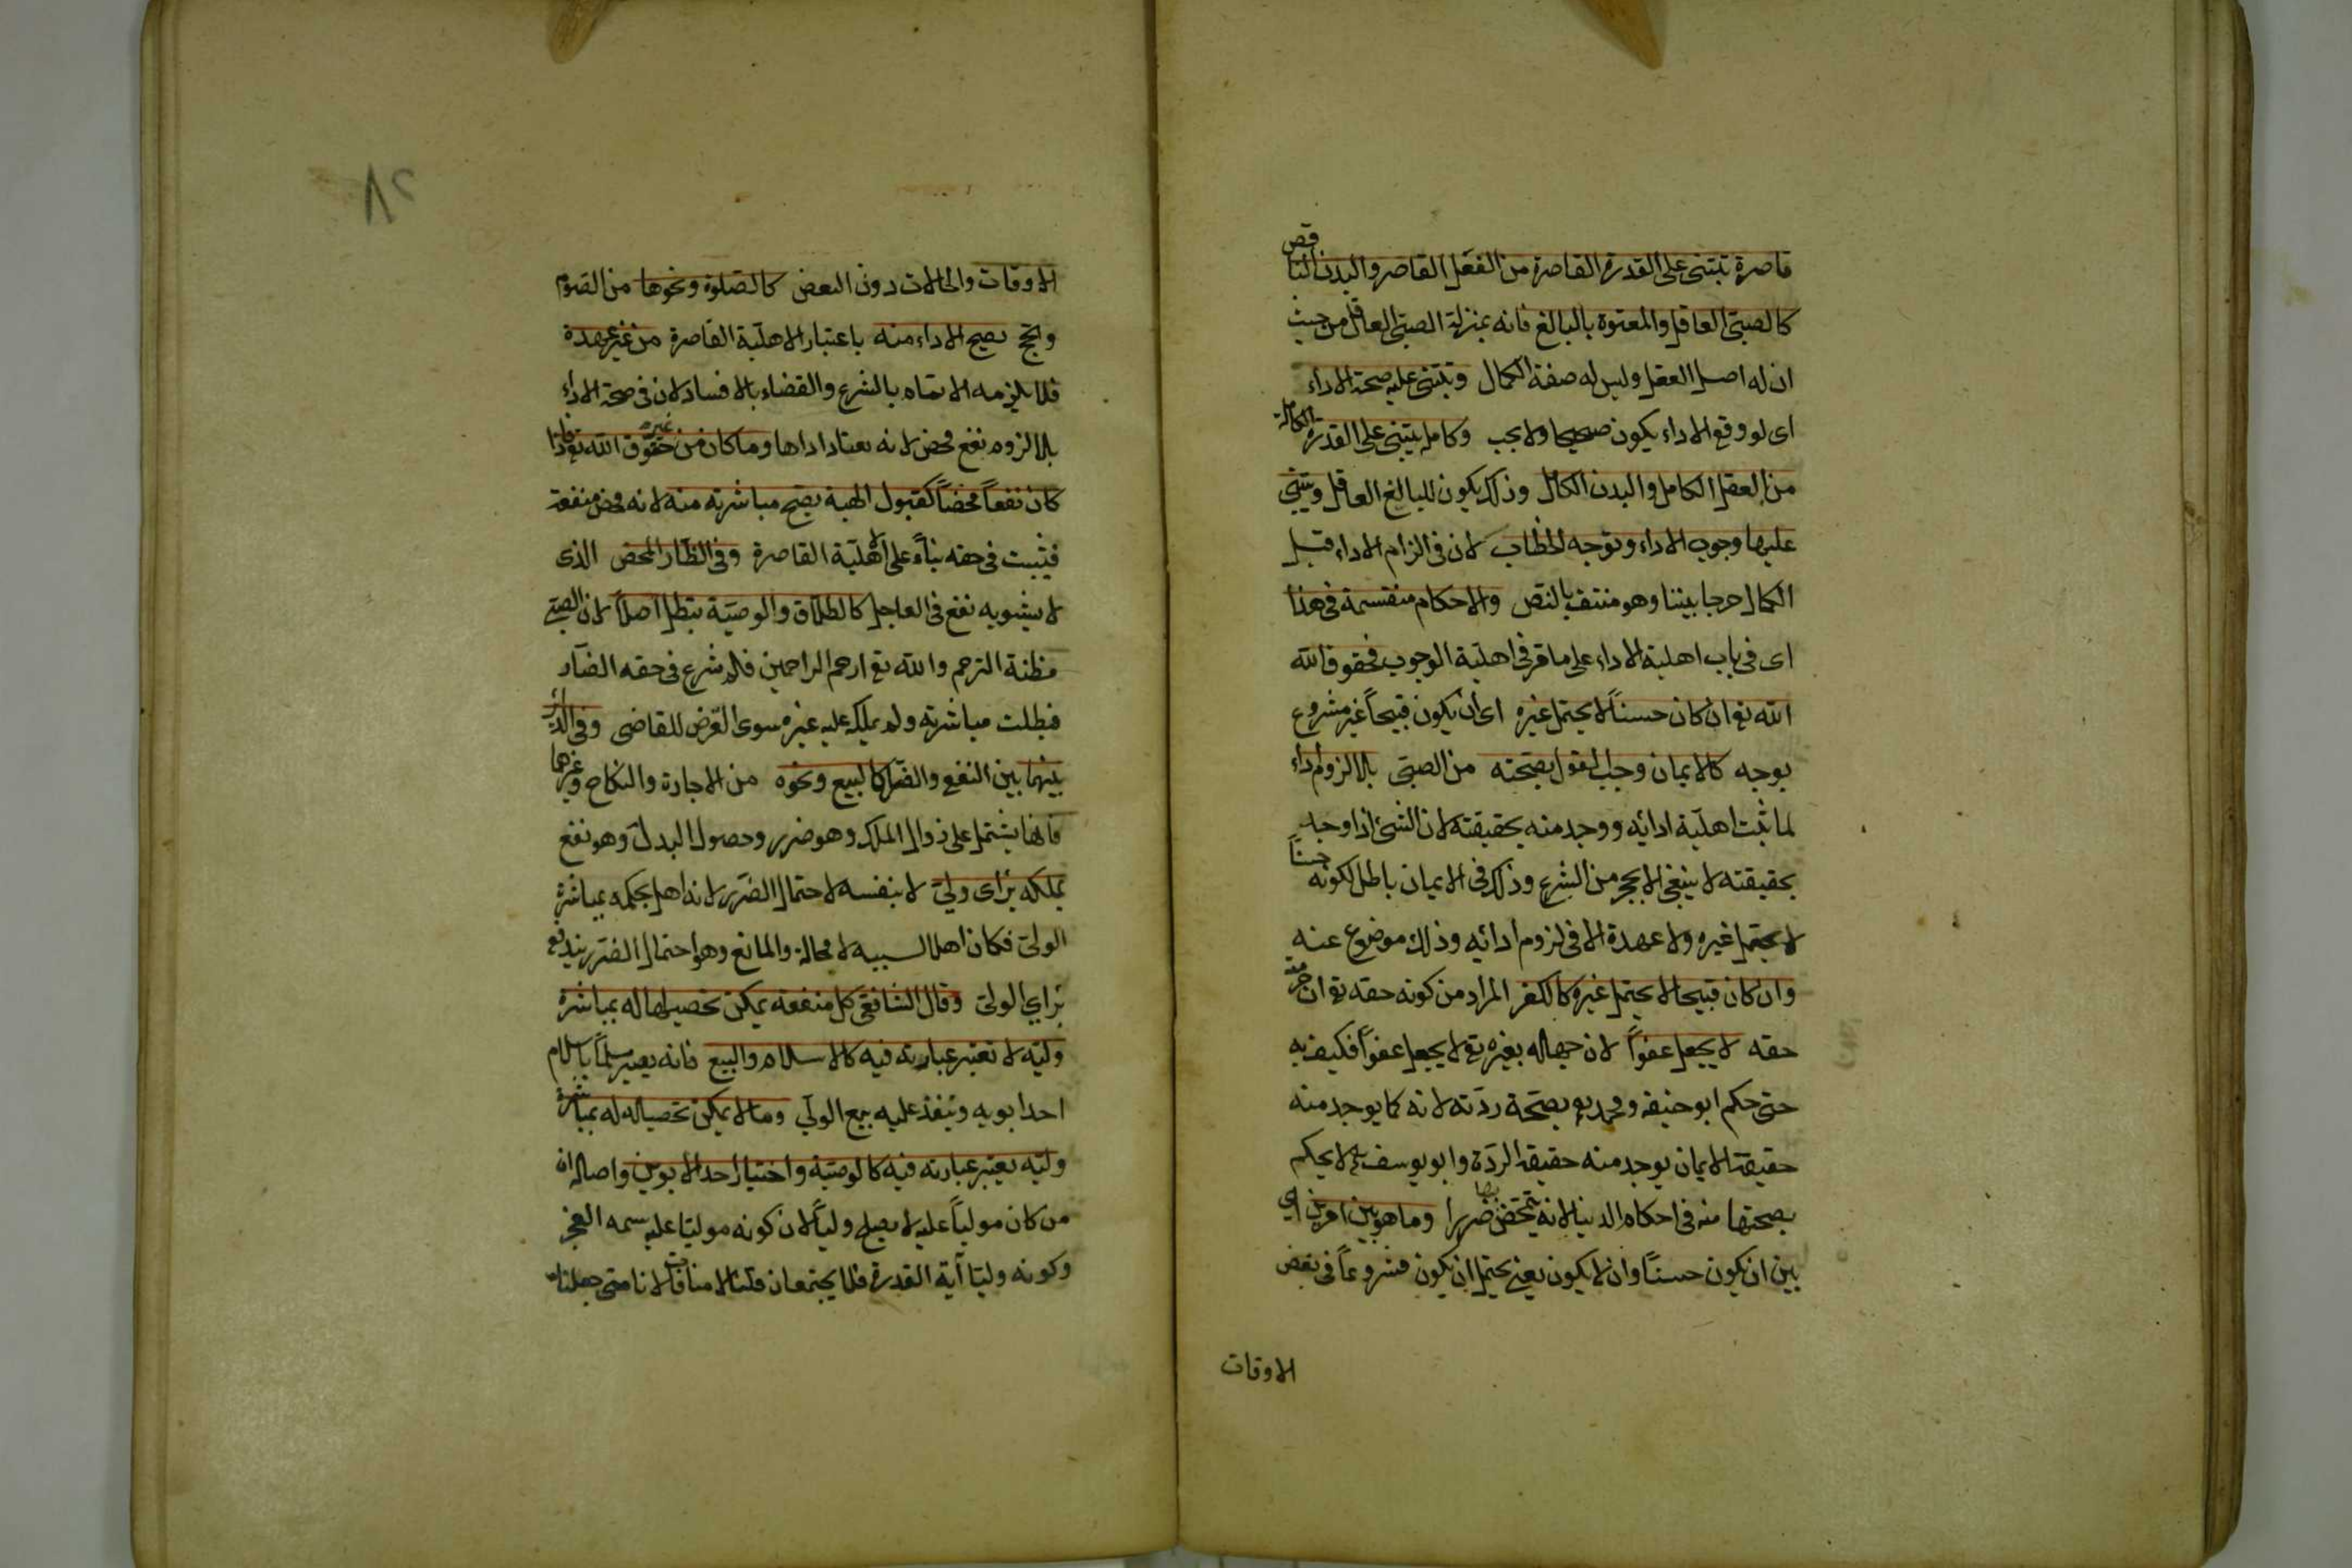 قاصرة تبتنى على القدرة القاصرة من العقل القاصر والبدن الناقص
كالصبى العاقل والمعتوه بالبالغ فانه بمنزلة الصبى العاقل من حيث
ان له اصل العقل وليس له صفة الكمال وتبتنى عليه صحة الاداء
اى لو وقع الاداء يكون صحيحا ولا يجب وكامل يبتنى على القدرة الكاملة
من العقل الكامل والبدن الكامل وذلك يكون للبالغ العاقل ويبتنى
عليها وجوب الاداء وتوجه الخطاب لان فى الزام الاداء قبل
الكمال حرجا بيننا وهو منتف بالنص والاحكام منقسمة فى هذا
اى فى باب اهلية الاداء على ما قر فى اهلية الوجوب فحقوق الله
الله تع ان كان حسناً لا يحتمل غيره اى ان يكون قبيحاً غير مشروع
بوجه كالايمان وجب القول بصحته من الصبى بلا لزوم اداء
لما ثبت اهلية ادائه ووجد منه بحقيقته لان الشئ اذا وجد
بحقيقته لا ينبغى الا بحجر من الشرع وذلك فى الايمان باطل لكونه حسناً
لا يحتمل غيره ولا عهدة الا فى لزوم ادائه وذلك موضوع عنه
وان كان قبيحا لا يحتمل غيره كالكفر المراد من كونه حقه تع ان حرمته
حقه لا يجعل عفواً لان جهاله بغيره تع لا يجعل عفواً فكيف به
حتى حكم ابو حنيفة ومحمد بصحة ردته لانه كما يوجد منه
حقيقة الايمان يوجد منه حقيقة الردة وابو يوسف لا يحكم
بصحتها منه فى احكام الدنيا لانه يتمحض بها ضررا وما هو بين امرين اى
بين ان يكون حسناً وان لا يكون يعنى يحتمل ان يكون مشروعاً فى بعض
الاوقات
٢٨
الاوقات والحالات دون البعض كالصلوة ونحوها من الصوم
والحج يصح الاداء منه باعتبار الاهلية القاصرة من غير عهدة
فلا يلزمه الاتمام بالشرع والقضاء بالافساد لان فى صحة الاداء
بلا لزوم نفع محض لانه يعتاد اداها وما كان من غير حقوق الله تع فاذا
كان نفعاً محضاً كقبول الهبة يصح مباشرته منه لانه محض منفعة
فيثبت فى حقه بناءً على الاهلية القاصرة وفى الضار المحض الذى
لا يشوبه نفع فى العاجل كالطلاق والوصية يبطل اصلاً لان الصبى
مظنة الترحم والله تع ارحم الراحمين فلم شرع فى حقه الضار
فبطلت مباشرته ولم يملكه عليه غيره سوى القرض للقاضى وفى الدائر
بينهما بين النفع والضر كالبيع ونحوه من الاجارة والنكاح وغيرهما
فانها يشتمل على زوال الملك وهو ضرر وحصول البدل وهو نفع
يملكه برأى ولى لا بنفسه لاحتمال الضرر لانه اهل بحكمه بمباشرة
الولى فكان اهلا لسببه لا محالة والمانع وهو احتمال الضرر يندفع
براي الولى وقال الشافعى كل منفعة يمكن تحصيلها له بمباشرة
وليه لا تعتبر عبارته فيه كالاسلام والبيع فانه يصير مسلماً باسلام
احد ابويه وينفذ عليه بيع الولي وما لا يمكن تحصيله له بمباشرة
وليه يعتبر عبارته فيه كالوصية واختيار احد الابوين واصله ان
من كان مولياً عليه لا يصلح ولياً لان كونه موليا عليه سمه العجز
وكونه وليا آية القدرة فلا يجتمعان قلنا لا منافات لانا متى جعلناه